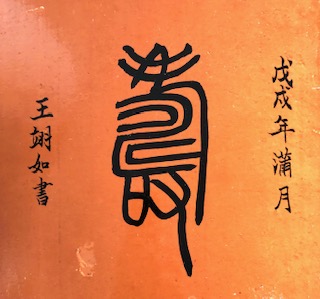 戊戌年蒲月
壽
王翊如書